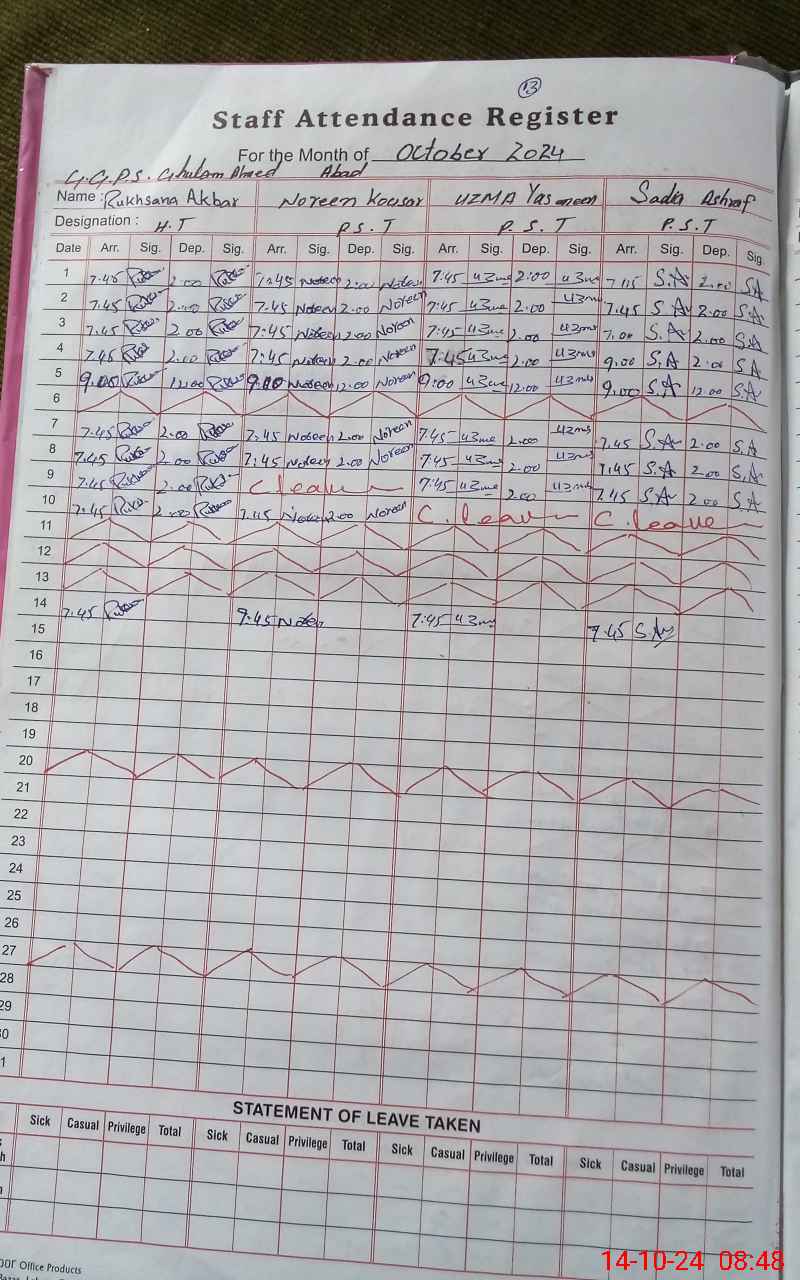 13
Staff Attendance Register
For the Month of October 2024
G.G.P.S. Ghulam Ahmed Abad
Name : Rukhsana Akbar Noreen Kousar UZMA Yasmeen Sadia Ashraf
Designation : H.T P.S.T P.S.T P.S.T
Date Arr. Sig. Dep. Sig. Arr. Sig. Dep. Sig. Arr. Sig. Dep. Sig. Arr. Sig. Dep. Sig.
1 7.45 2.00 7:45 Noreen 2:00 Noreen 7:45 uzma 2:00 uzma S.A 2.00 SA
2 7.45 2.00 7.45 Noreen 2.00 Noreen 7:45 uzma 2.00 uzma 7.45 S.A 2.00 S.A
3 7.45 2.00 7:45 Noreen 2.00 Noreen 7:45 uzma 2.00 uzma S.A 2.00 S.A
4 7.45 2.00 7:45 Noreen 2.00 Noreen 7:45 uzma 2.00 uzma 9.00 S.A 2.00 S.A
5 9.00 12.00 9.00 Noreen 12.00 Noreen 9:00 uzma 12.00 uzma 9.00 S.A 12.00 S.A
6
7 7.45 2.00 7.45 Noreen 2.00 Noreen 7.45 uzma 2.00 uzma 7.45 S.A 2.00 S.A
8 7.45 2.00 7:45 Noreen 2.00 Noreen 7.45 uzma 2.00 uzma 7.45 S.A 2.00 S.A
9 7.45 2.00 C leave 7.45 uzma 2.00 uzma 7.45 S.A 2.00 S.A
10 7.45 2.00 7.45 Noreen 2.00 Noreen C. leave C. leave
11
12
13
14 7.45 7.45 uzma
15 7.45 S.A
16
17
18
19
20
21
22
23
24
25
26
27
28
29
30
31
STATEMENT OF LEAVE TAKEN
Sick Casual Privilege Total Sick Casual Privilege Total Sick Casual Privilege Total Sick Casual Privilege Total
Office Products
14-10-24 08:48